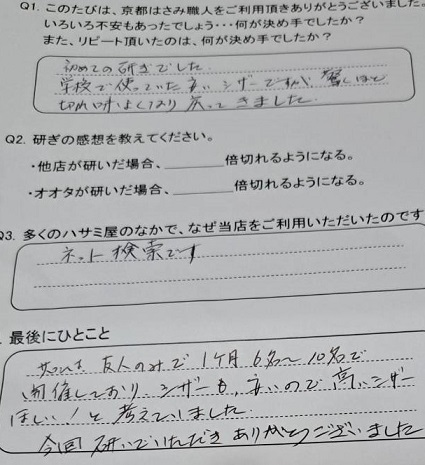 Q1. このたびは、京都はさみ職人をご利用頂きありがとうございました。
いろいろ不安もあったでしょう・・・何が決め手でしたか？
また、リピート頂いたのは、何が決め手でしたか？
初めての研ぎでした
学校で使っていた安いシザーですが、驚くほど
切れ味よくなり戻ってきました
Q2. 研ぎの感想を教えてください。
・他店が研いだ場合、 倍切れるようになる。
・オオタが研いだ場合、 倍切れるようになる。
Q3. 多くのハサミ屋のなかで、なぜ当店をご利用いただいたのです
ネット検索です
最後にひとこと
友人のみで 1ヶ月 6名〜10名で
開催しており、シザーも、安いので 高いシザー
ほしい！と 考えていました
今回 研いでいただき ありがとうございました